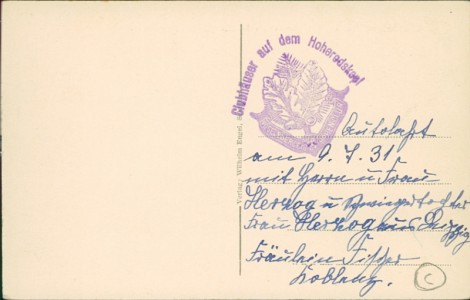 Clubhäuser auf dem Hoherodskopf
Verlag: Wilhelm Engel,
Autofahrt
am 9. 7. 31
mit Herrn u Frau
Herzog u Schwiegertochter
Frau Herzog aus Leipzig
Fräulein Fischer
Koblenz.
C